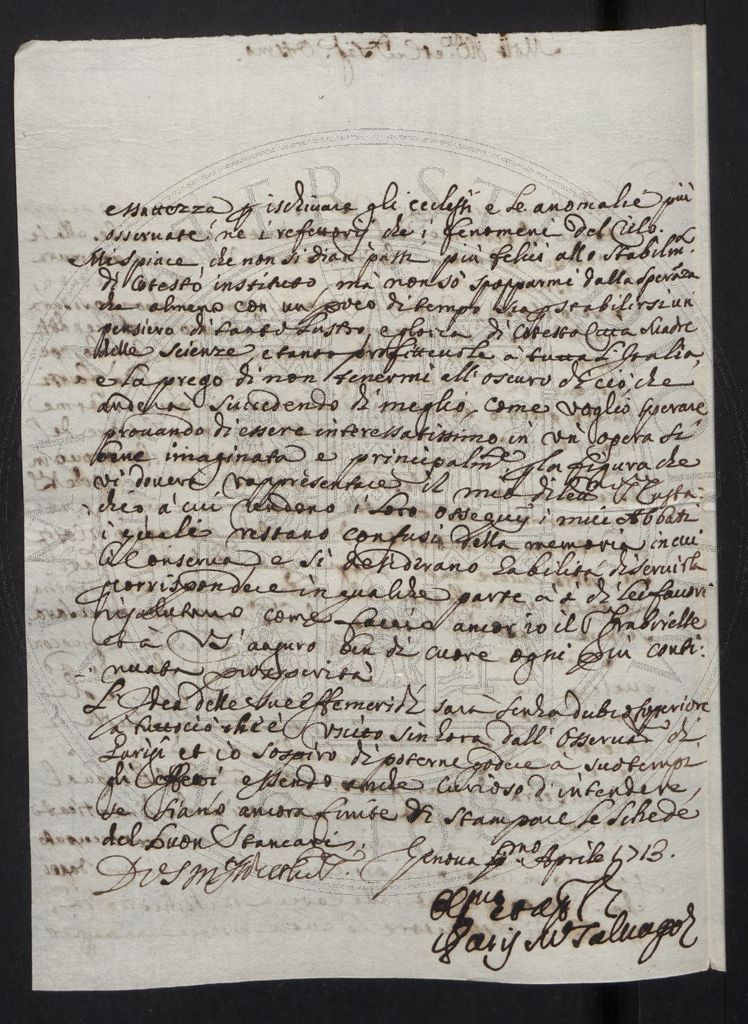 essattezza p ischivare gli ecclessi e le anomalie più
osservate ne i refettorij che i fenomeni del Cielo.
Mi spiace, che non si dian passi più felici allo stabilim.to
di Cotesto instituto, ma non sò spopparmi dalla speranza
che almeno con un poco di tempo sia p stabilirsi un
pensiero di tanto lustro, e gloria di Cotesta Città Madre
delle scienze e tanto proffittevole a tutta l'Italia,
e la prego di non tenermi all'oscuro di ciò, che
anderà succedendo di meglio, come voglio sperare
provando di essere interessatissimo in un' opera si
bene imaginata e principalm.te p la figura che
vi doverà rappresentare il mio dilett.o S.r Eusta-
chio à cui rendono i loro ossequij i miei Abbati
i quali restano confusi della memoria, in cui
li conserva e si desiderano habilità di servirla
corrispondere in qualche parte à i di lei favori
risalutano come faccio ancor io il
et à V.S. auguro bin di cuore ogni più conti-
nuata prosperità
L'Idea delle sue effemeridi sarà senza dubio superiore
a tuttociò che è uscito sin hora dall' Osservat.o di
Parigi et io sospiro di poterne godere à suo tempo
gli effetti essendo anche curioso d'intendere,
se siano ancora finite di stampare le schede
del buon Stancari.
Genova p.mo Aprile 1713.
Di V.S. M.to Ill.re
Paris M.a Salvago